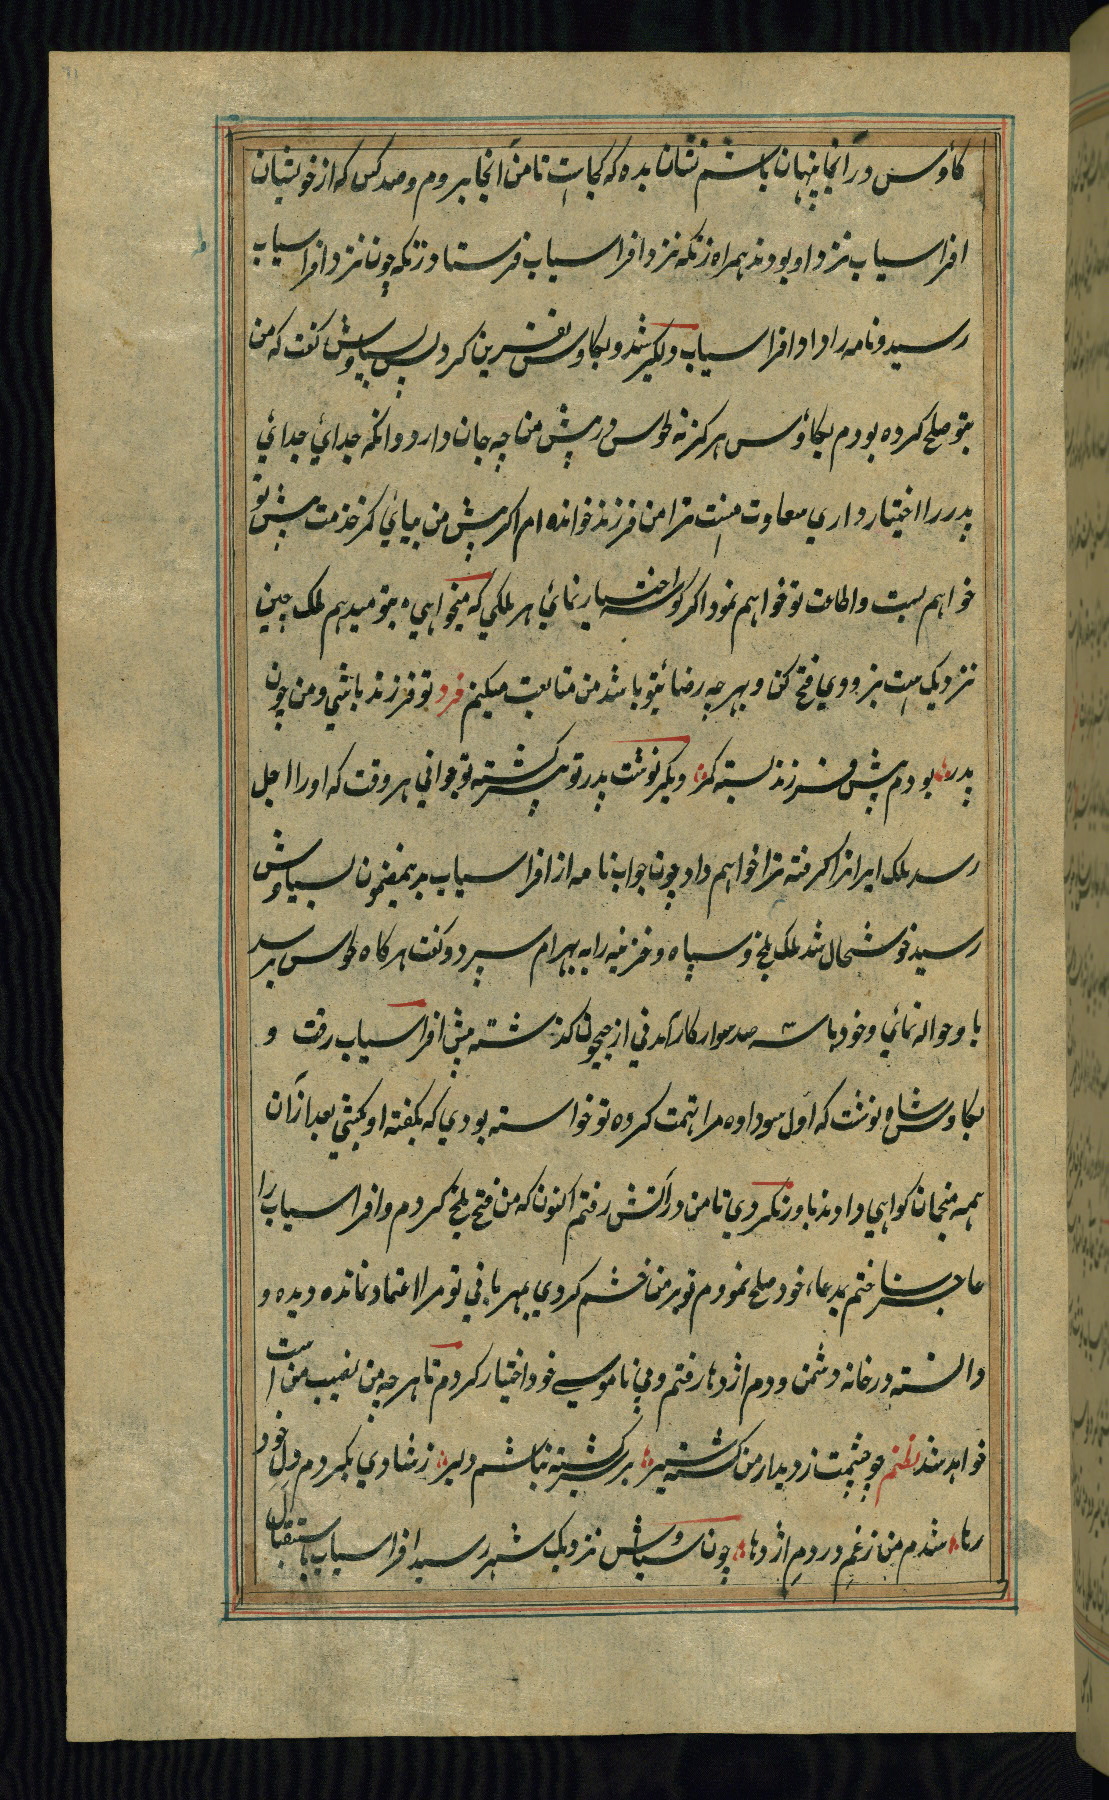 کاؤس در آنجا پنهان باشم نشان بده که کجاست تا من آنجا بروم و صد کس که از خویشان
افراسیاب نزد او بودند همراه زنکه نزد افراسیاب فرستاد زنکه چون نزد افراسیاب
رسید و نامه را داد افراسیاب دلکیر شد و بکاوس نفرین کرد پس بسیاوش کفت که من
بتو صلح کرده بودم بکاؤس هرکز نه طوس در پیش من چه جان دارد وانکه جدائی جدائی
پدر را اختیار داری سعاوت منست ترا من فرزند خوانده ام اکر پیش من بیائی کمر خدمت پیش تو
خواهم بست و اطاعت تو خواهم نمود اکر تو اختیار نمائی هر ملکی که میخواهی بتو میدهم ملک چین
نزدیک است بزودی فتح کن و بهر چه رضائتو باشد من متابعت میکنم فرد تو فرزند باشی و من چون
پدر بودم پیش فرزند بسته کمر دیکر نوشت پدر تو پیر کشته تو جوانی هر وقت که او را اجل
رسد ملک ایرانرا کرفته ترا خواهم داد چون جواب نامه از افراسیاب بدینمضمون بسیاوش
رسید خوشحال شد ملک بلخ و سپاه و خزینه را به بهرام سپرد و کفت هرکاه طوس برسد
باو حواله نمائی و خود با سه صد سوار کارآمدنی از جیحون کذشته پیش افراسیاب رفت و
بکاوس شاه نوشت که اول سوداوه مرا تهمت کرده تو خواسته بودی که بکفته او بکشی بعد ازآن
همه منجمان کواهی دادند باور نکردی تا من در آتش رفتم اکنون که من فتح بلخ کردم و افراسیاب را
عاجز ساختم بمدعاء خود صلح نمودم تو بر من خشم کردی بمهربانی تو مرا اعتماد نمانده دیده و
دانسته در خانه دشمن و دم اژدها رفتم و بی ناموسی خود اختیار کردم تا هر چه من نصیب من است
خواهد شد نظم چو چشمت ز دیدار من کشته سیر بر کشته نباشم دلیر ز شادی بکردم دل خود
رها شدم من ز غم در دم اژدها چون سیاوش نزدیک شهر رسید افراسیاب باستقبال